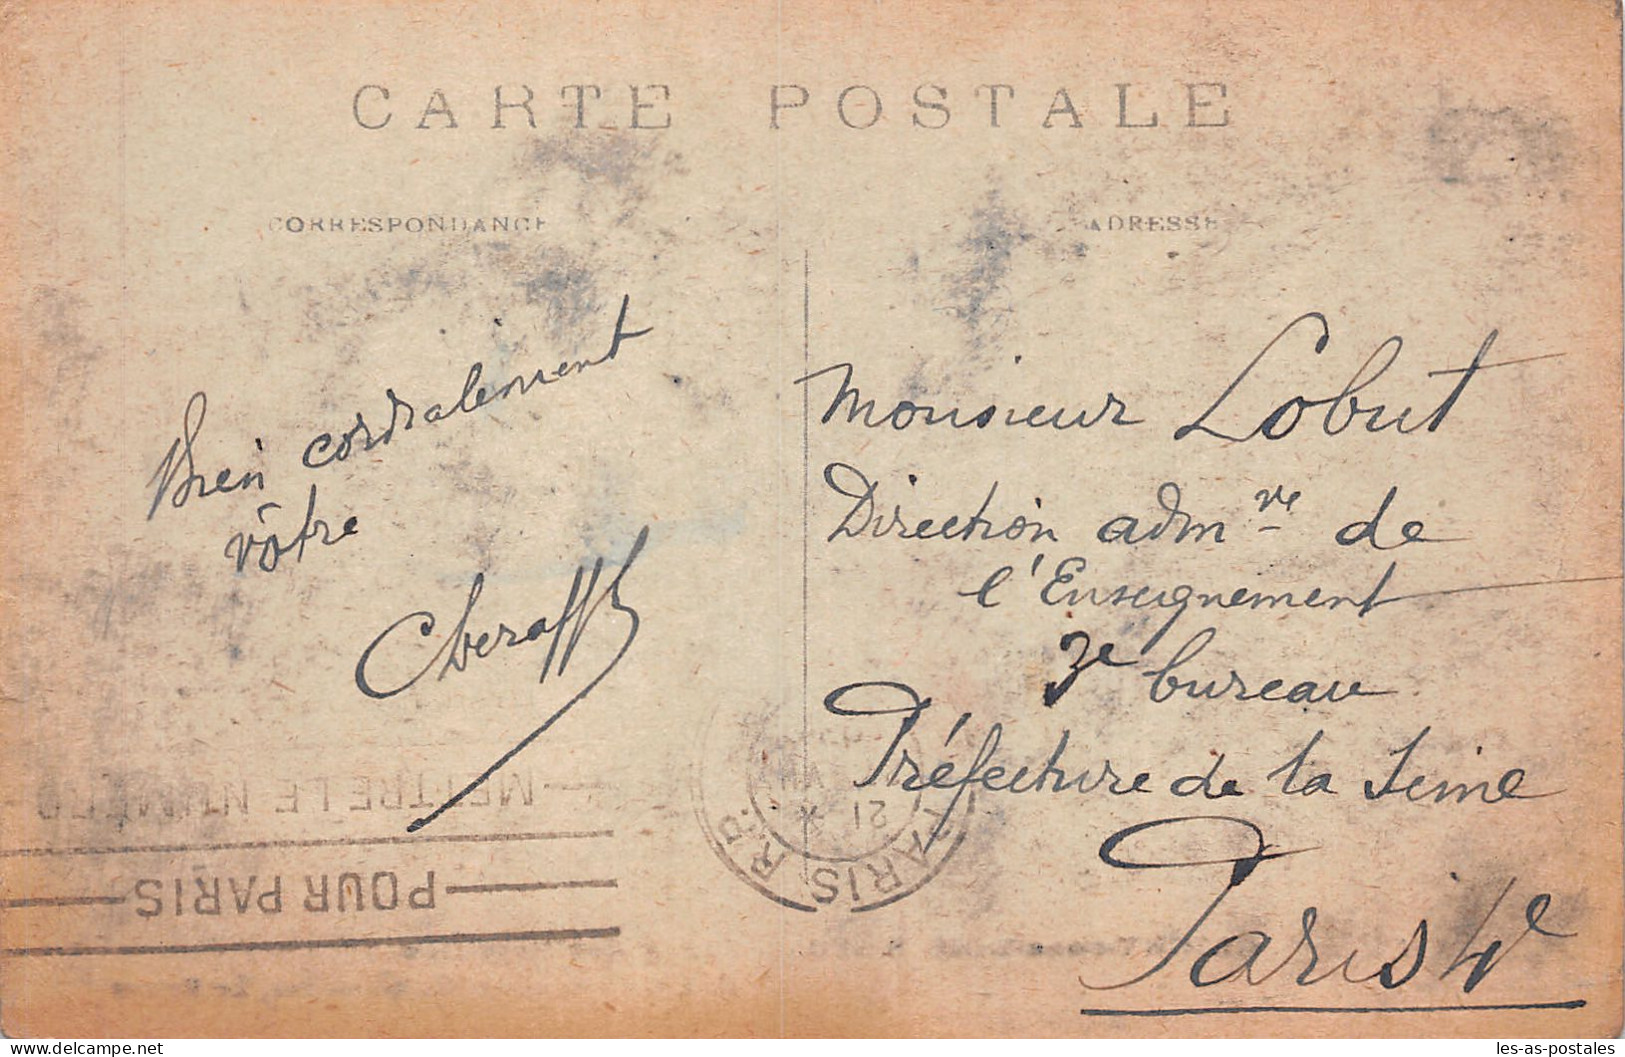 CARTE POSTALE
CORRESPONDANCE
ADRESSE
Bien cordialement
vôtre
Monsieur Lobut
Direction adm ve de
l'Enseignement
3e bureau
Préfecture de la Seine
Paris 4e
METTRE LE NUMERO
POUR PARIS
PARIS R.P.
21
delcampe.net
les-as-postales